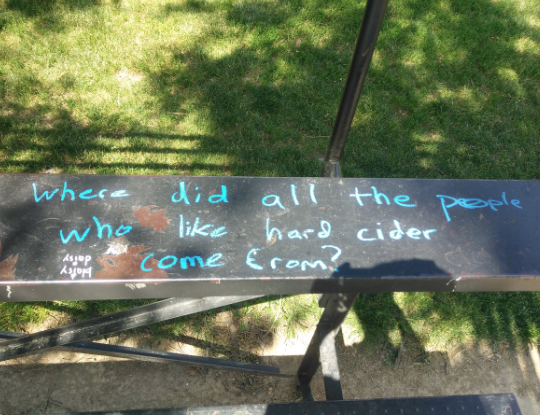 Where did all the people
who like hard cider
come from?
daisy